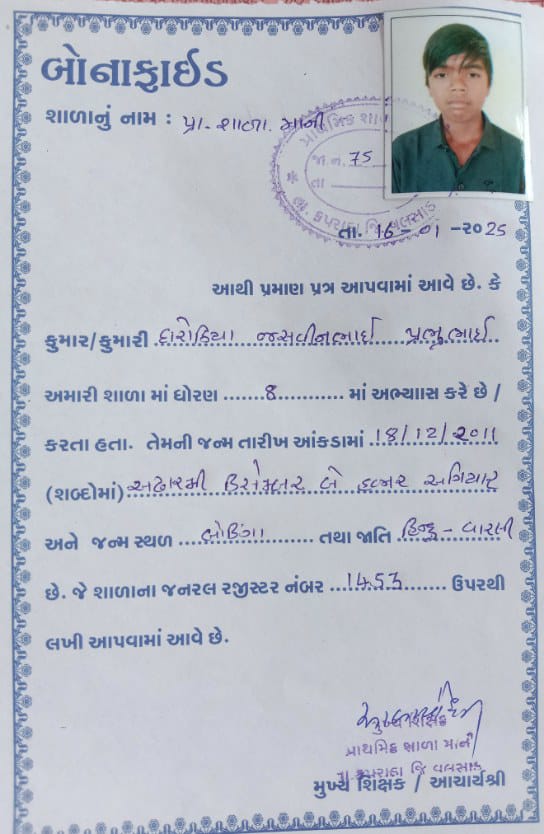 બોનાફાઈડ
શાળાનું નામ : પ્રા. શાળા. માની
પ્રાથમિક શા
જા.ન. 75
તા
તા. કપરાડા જિ વલસાડ
તા. 16-01-૨૦25
આથી પ્રમાણ પ્રત્ર આપવામાં આવે છે. કે
કુમાર/કુમારી દારોડિયા જસવીનભાઈ પ્રભુભાઈ
અમારી શાળા માં ધોરણ 8 માં અભ્યાાસ કરે છે /
કરતા હતા. તેમની જન્મ તારીખ આંકડામાં 18/12/૨૦11
(શબ્દોમાં) અઢારમી ડિસેમ્બર બે હજાર અગિયાર
અને જન્મ સ્થળ તથા જાતિ હિન્દુ - વારલી
છે. જે શાળાના જનરલ રજીસ્ટર નંબર 1453 ઉપરથી
લખી આપવામાં આવે છે.
મુખ્ય શિક્ષક
પ્રાથમિક શાળા માની
તા કપરાડા જિ વલસાડ
મુખ્ય શિક્ષક / આચાર્યશ્રી